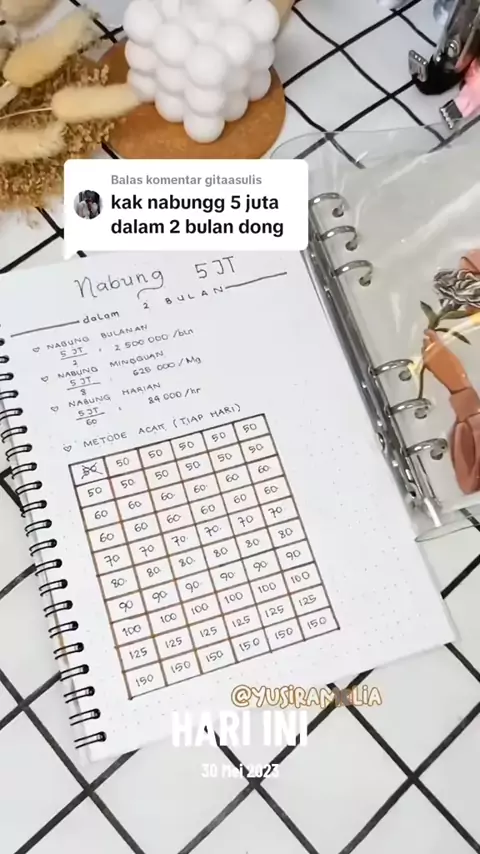 Balas komentar gitaasulis
kak nabungg 5 juta
dalam 2 bulan dong
Nabung 5 JT
dalam 2 BULAN
NABUNG BULANAN
5 JT
2 = 2 500 000 /bln
NABUNG MINGGUAN
5 JT
8 = 625 000 /Mg
NABUNG HARIAN
5 JT
60 = 84 000 /hr
METODE ACAK (TIAP HARI)
50 50 50 50 50 50
50 50 50 50 50 50
60 60 60 60 60 60
60 60 60 60 60 60
70 70 70 70 70 70
80 80 80 80 80 80
90 90 90 90 90 90
100 100 100 100 100 100
125 125 125 125 125 125
150 150 150 150 150 150
@YUSIRAMELIA
HARI INI
30 Mei 2023